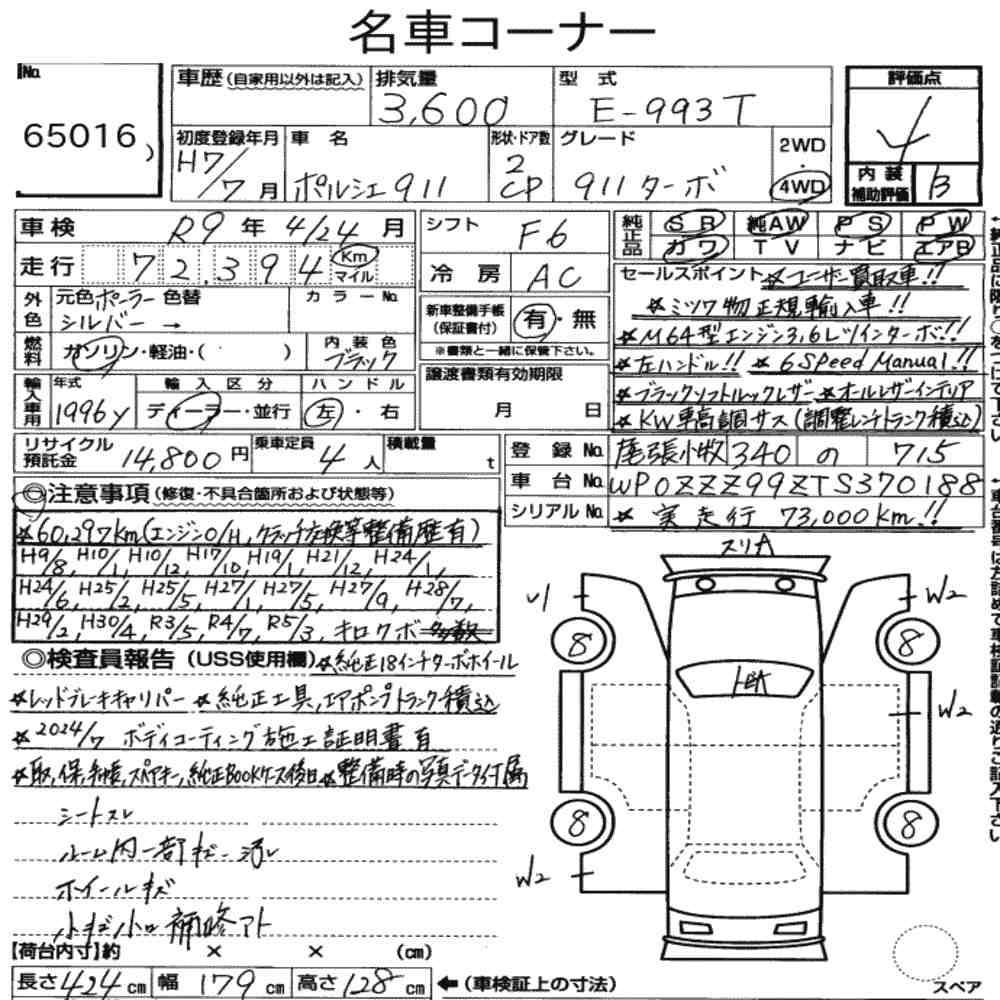 名車コーナー
No.
65016
車歴 (自家用以外は記入)
排気量
3,600
型式
E-993T
初度登録年月
H7/7月
車名
ポルシェ911
形状・ドア数
2
CP
グレード
911ターボ
2WD
・
4WD
評価点
4
内装
補助評価
B
車検 R9年4/24月
走行 72,394 Km
マイル
シフト F6
冷房 AC
純正品
SR 純AW PS PW
カワ TV ナビ エアB
外色
元色 ポーラー 色替
シルバー →
カラーNo.
燃料
ガソリン・軽油・( )
内装色
ブラック
新車整備手帳
(保証書付)
有・無
※書類と一緒に保管下さい。
輸入車用
年式
1996y
輸入区分
ディーラー・並行
ハンドル
左・右
譲渡書類有効期限
月 日
リサイクル
預託金 14,800円
乗車定員 4人
積載量 t
セールスポイント ★ユーザー買取車!!
★ミツワ物正規輸入車!!
★M64型エンジン3,6Lツインターボ!!
★左ハンドル!! ★6Speed Manual!!
★ブラックソフトルックレザー ★オールレザーインテリア
★KW車高調サス(調整レンチトランク積込)
登録No. 尾張小牧 340 の 715
車台No. WP0ZZZ99ZTS370188
シリアルNo. ★実走行 73,000km!!
◎注意事項 (修復・不具合箇所および状態等)
★60,297km(エンジンO/H,クラッチ交換等整備歴有)
H9/8, H10/1, H10/12, H17/10, H19/1, H21/12, H24/1,
H24/6, H25/2, H25/5, H27/1, H27/5, H27/9, H28/7,
H29/2, H30/4, R3/5, R4/7, R5/3, キロクボ
◎検査員報告 (USS使用欄) ★純正18インチターボホイール
★レッドブレーキキャリパー ★純正工具,エアポンプトランク積込
★2024/7 ボディコーティング施工証明書有
★取,保,手帳,スペアキー,純正BOOKケース後日 ★整備時の写真データ付属
シートスレ
ルーム内一部キズ・汚レ
ホイールキズ
小キズ小凹補修アト
スリA
W2
W2
W2
8
8
8
8
【荷台内寸】約 × × (cm)
長さ424cm 幅179cm 高さ128cm ←(車検証上の寸法)
スペア